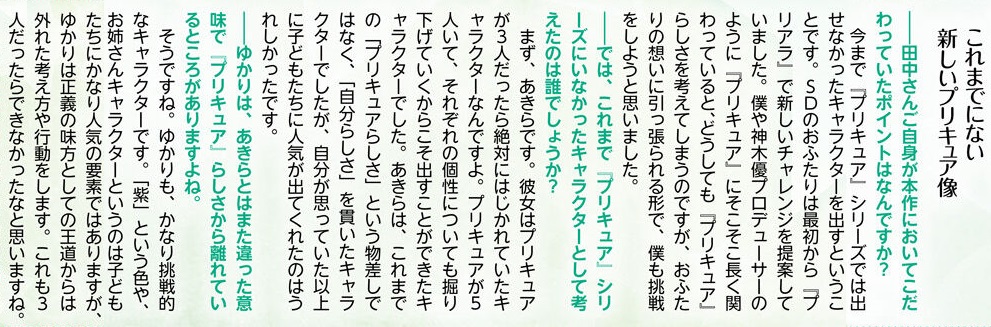 これまでにない
新しいプリキュア像
――田中さんご自身が本作においてこだ
わっていたポイントはなんですか？
　今まで『プリキュア』シリーズでは出
せなかったキャラクターを出すというこ
とです。ＳＤのおふたりは最初から『プ
リアラ』で新しいチャレンジを提案して
いました。僕や神木優プロデューサーの
ように『プリキュア』にそこそこ長く関
わっていると、どうしても『プリキュア』
らしさを考えてしまうのですが、おふた
りの想いに引っ張られる形で、僕も挑戦
をしようと思いました。
――では、これまで『プリキュア』シリ
ーズにいなかったキャラクターとして考
えたのは誰でしょうか？
　まず、あきらです。彼女はプリキュア
が３人だったら絶対にはじかれていたキ
ャラクターなんですよ。プリキュアが５
人いて、それぞれの個性についても掘り
下げていくからこそ出すことができたキ
ャラクターでした。あきらは、これまで
の「プリキュアらしさ」という物差しで
はなく、「自分らしさ」を貫いたキャラ
クターでしたが、自分が思っていた以上
に子どもたちに人気が出てくれたのはう
れしかったです。
――ゆかりは、あきらとはまた違った意
味で『プリキュア』らしさから離れてい
るところがありますよね。
　そうですね。ゆかりも、かなり挑戦的
なキャラクターです。「紫」という色や、
お姉さんキャラクターというのは子ども
たちにかなり人気の要素ではありますが、
ゆかりは正義の味方としての王道からは
外れた考え方や行動をします。これも３
人だったらできなかったなと思いますね。